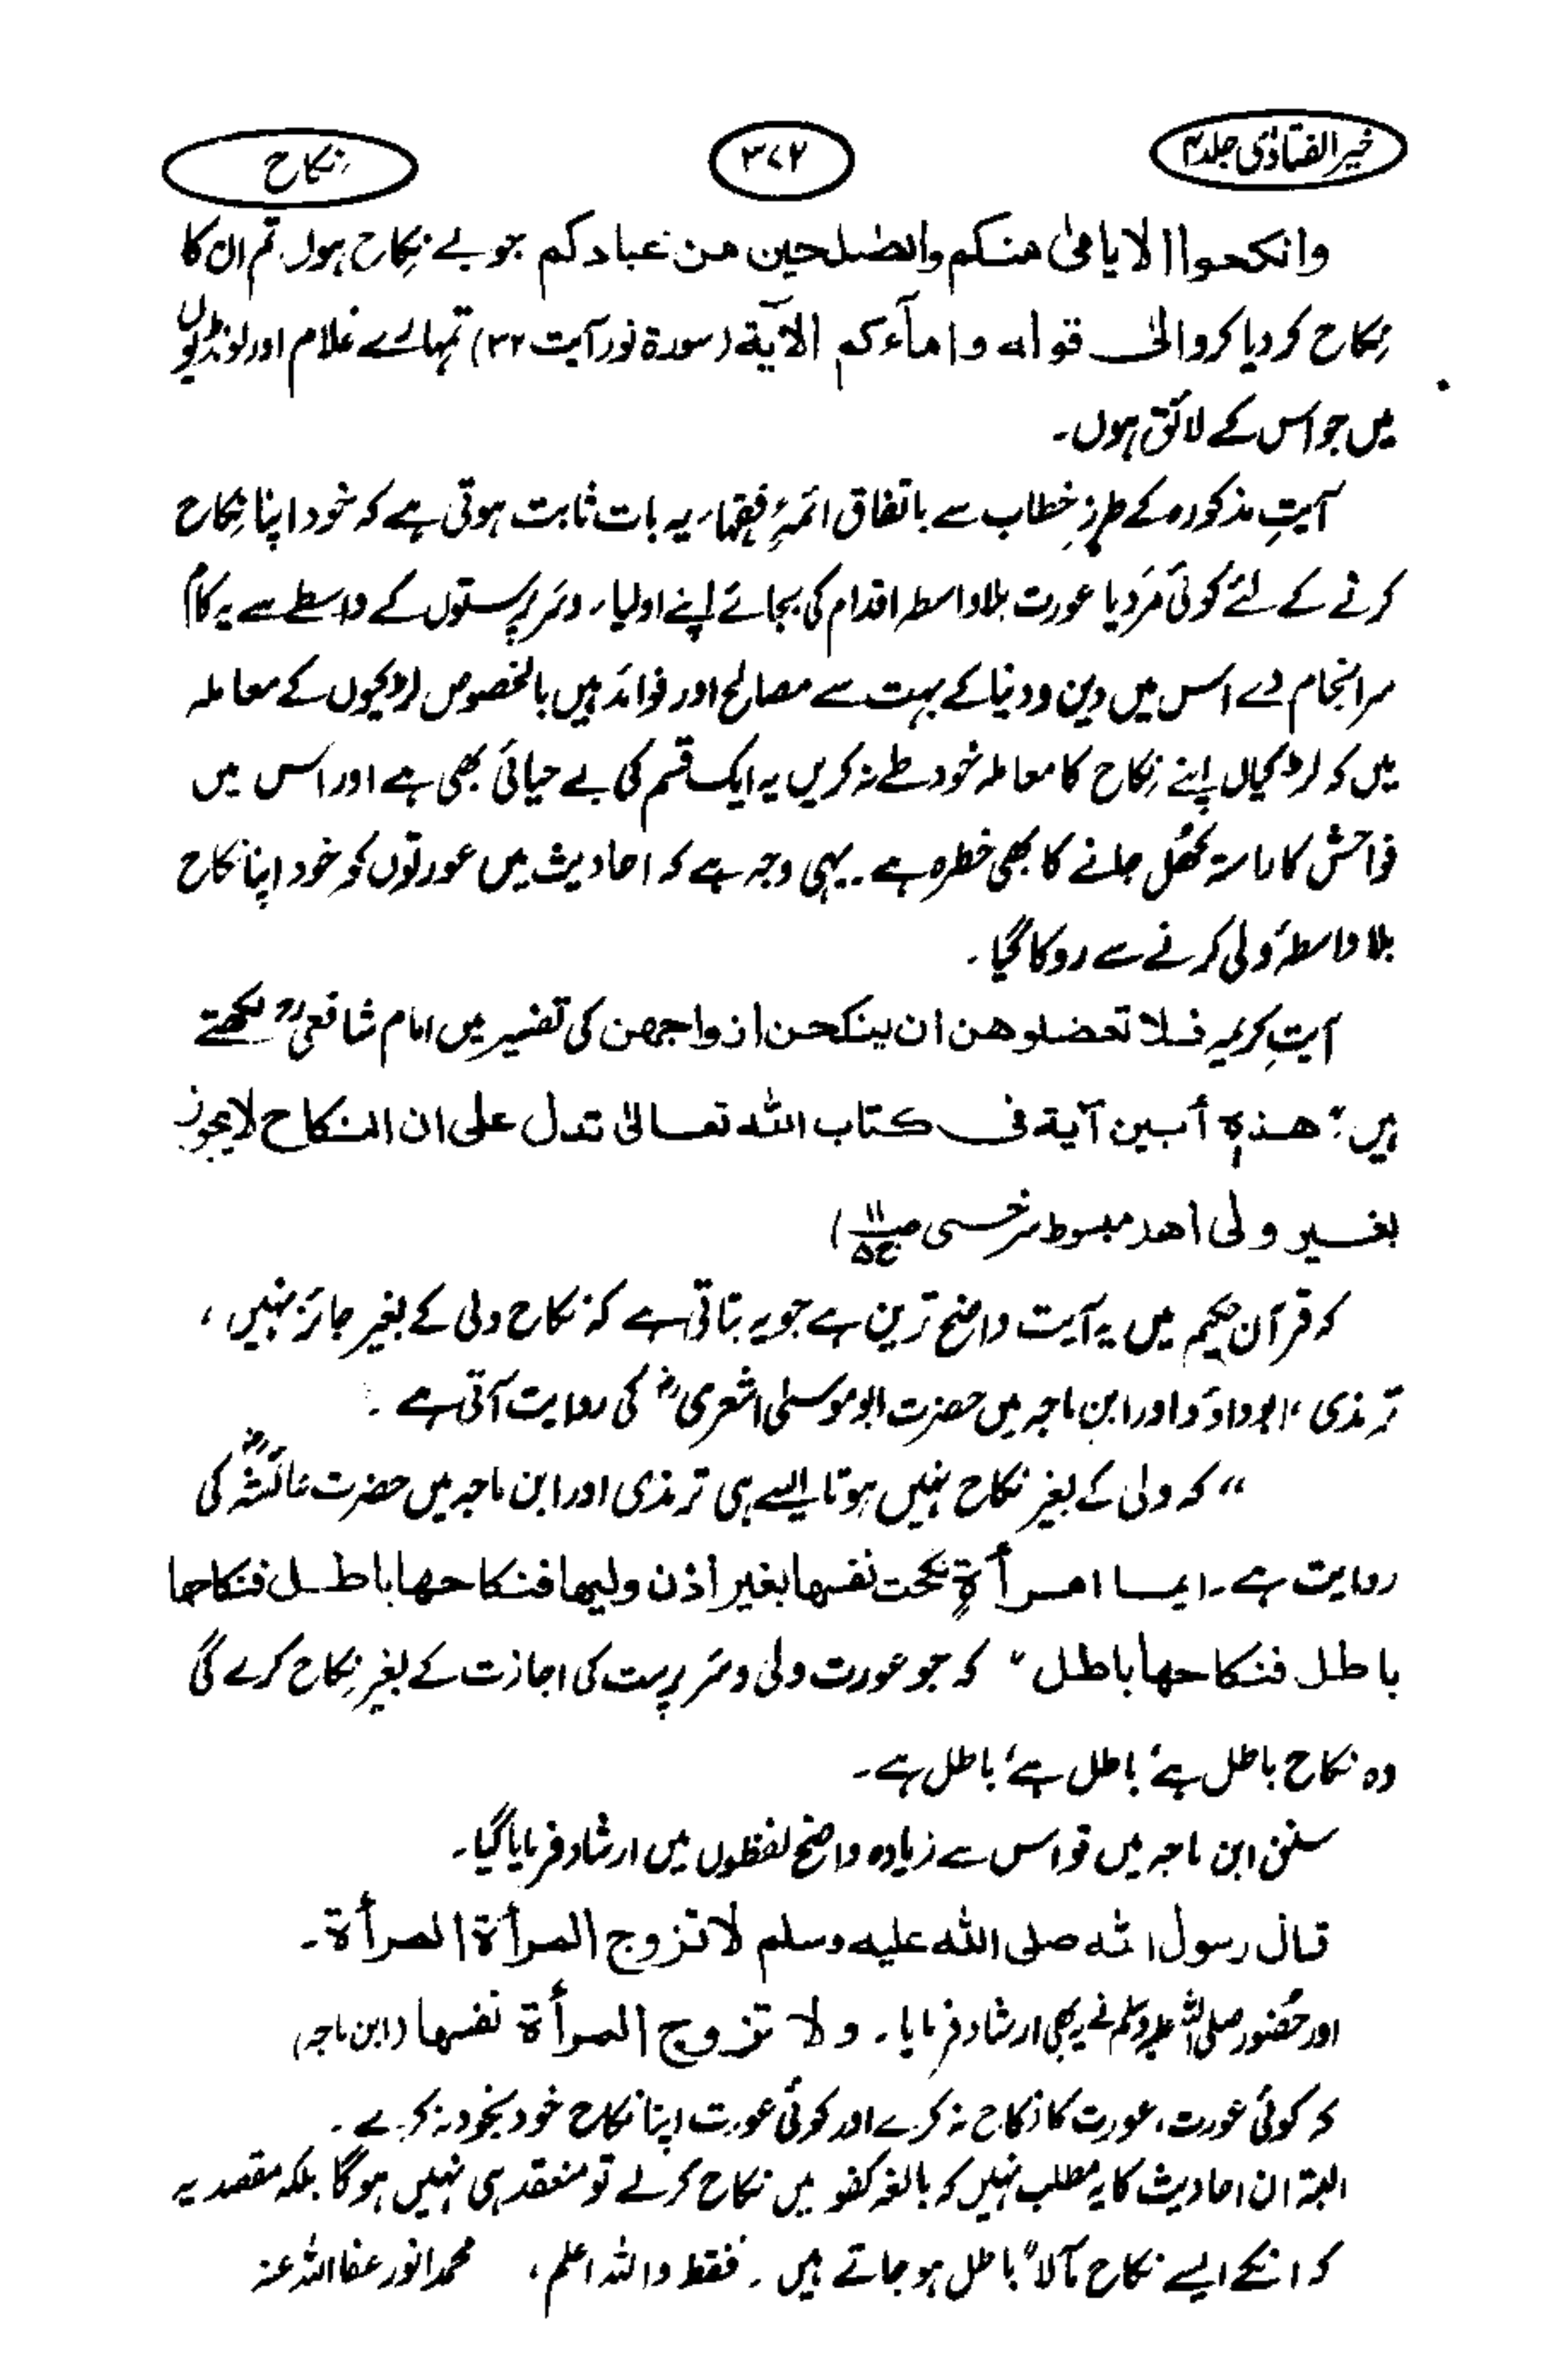 خیر الفتاوٰی جلد ۴
۳۷۲
نکاح
وانکحوا الایامیٰ منکم والصٰلحین من عبادکم جو بے نِکاح ہوں تم ان کا
نِکاح کر دیا کرو الیٰ قولہ واماءکم الآیۃ (سورۃ نور آیت ۳۲) تمہارے غلام اور لونڈیوں
میں جو اس کے لائق ہوں۔
آیتِ مذکورہ کے طرزِ خطاب سے باتفاق ائمۂ فقہاء یہ بات ثابت ہوتی ہے کہ خود اپنا نِکاح
کرنے کے لئے کوئی مَرد یا عورت بلاواسطہ اقدام کی بجائے اپنے اولیاء و سَرپرستوں کے واسطے سے یہ کام
سرانجام دے اس میں دین و دنیا کے بہت سے مصالح اور فوائد ہیں بالخصوص لڑکیوں کے معاملہ
میں کہ لڑکیاں اپنے نِکاح کا معاملہ خود طے نہ کریں یہ ایک قسم کی بے حیائی بھی ہے اور اس میں
فواحش کا راستہ کھُل جانے کا بھی خطرہ ہے۔ یہی وجہ ہے کہ احادیث میں عورتوں کو خود اپنا نکاح
بلا واسطۂ ولی کرنے سے روکا گیا۔
آیتِ کریمہ فلا تعضلوھن ان ینکحن ازواجھن کی تفسیر میں امام شافعیؒ لکھتے
ہیں: ”ھذہ أبین آیۃ فی کتاب اللہ تعالیٰ تدل علی ان النکاح لایجوز
بغیر ولی اھ (مبسوط سرخسی ص۱۱ ج۵)
کہ قرآن حکیم میں یہ آیت واضح ترین ہے جو یہ بتاتی ہے کہ نکاح ولی کے بغیر جائز نہیں،
ترمذی، ابوداؤد اور ابن ماجہ میں حضرت ابوموسیٰ اشعریؓ کی روایت آتی ہے۔
”کہ ولی کے بغیر نکاح نہیں ہوتا ایسے ہی ترمذی اور ابن ماجہ میں حضرت عائشہؓ کی
روایت ہے۔ ایما امرأۃٍ نکحت نفسہا بغیر أذن ولیہا فنکاحھا باطل فنکاحہا
باطل فنکاحھا باطل“ کہ جو عورت ولی و سَرپرست کی اجازت کے بغیر نِکاح کرے گی
وہ نکاح باطل ہے، باطل ہے، باطل ہے۔
سنن ابن ماجہ میں تو اس سے زیادہ واضح لفظوں میں ارشاد فرمایا گیا۔
قال رسول اللہ صلی اللہ علیہ وسلم لا تزوج المرأۃ المرأۃ۔
اور حضُور صلی اللہ علیہ وسلم نے یہ بھی ارشاد فرمایا۔ ولا تزوج المرأۃ نفسہا (ابن ماجہ)
کہ کوئی عورت، عورت کا نکاح نہ کرے اور کوئی عورت اپنا نکاح خود بخود نہ کرے۔
البتہ ان احادیث کا یہ مطلب نہیں کہ بالغہ کفو میں نکاح کرلے تو منعقد ہی نہیں ہوگا بلکہ مقصد یہ
کہ انکے ایسے نکاح مآلاً باطل ہوجاتے ہیں۔ فقط واللہ اعلم، محمد انور عفا اللہ عنہ